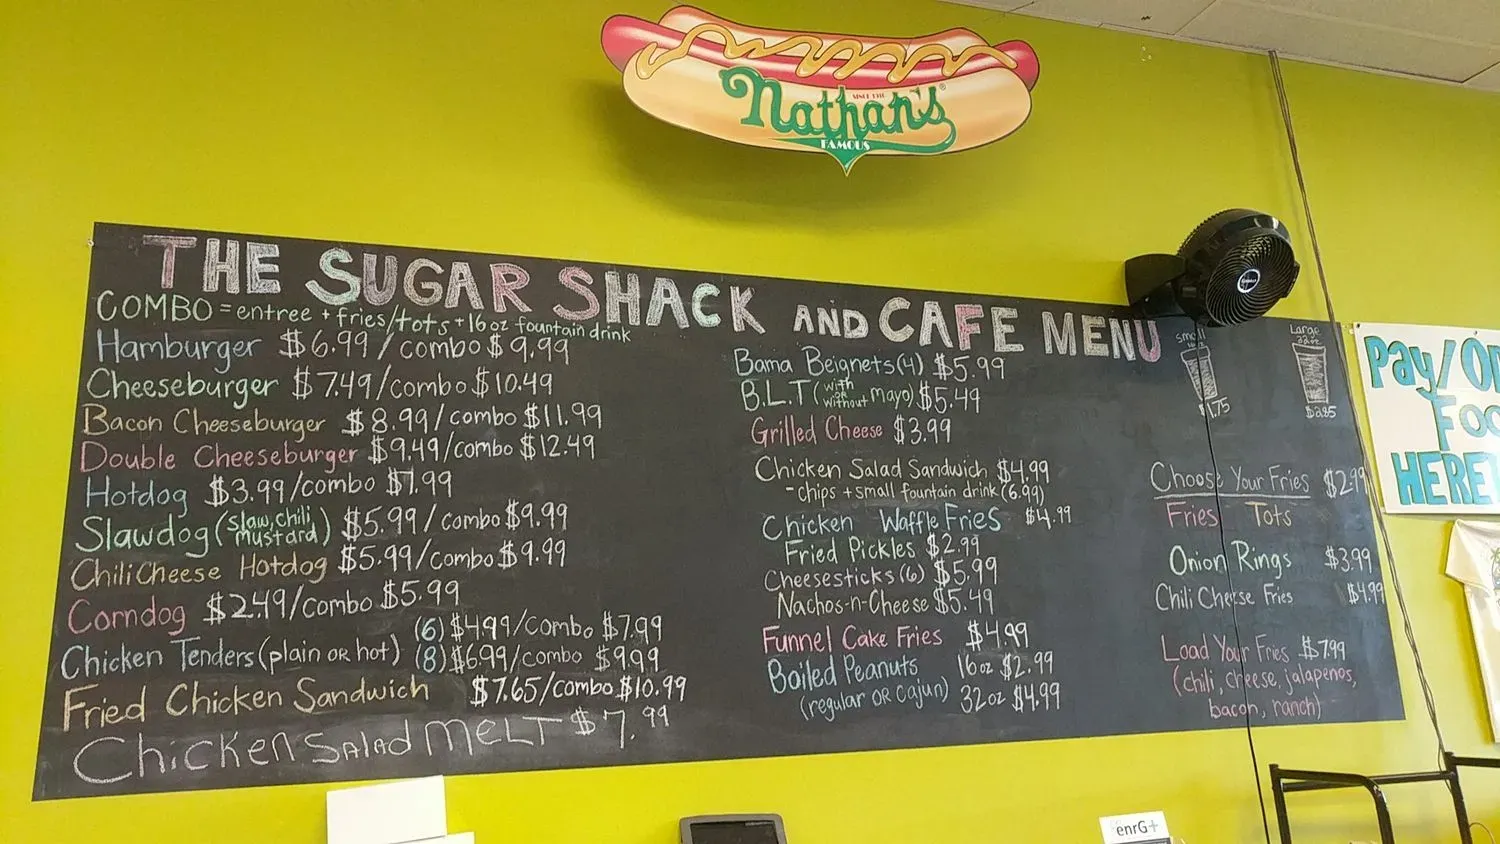 SINCE 1916
Nathan's®
FAMOUS
THE SUGAR SHACK AND CAFE MENU
COMBO = entree + fries/tots + 16 oz fountain drink
Hamburger $6.99/combo $9.99
Cheeseburger $7.49/combo $10.49
Bacon Cheeseburger $8.99/combo $11.99
Double Cheeseburger $9.49/combo $12.49
Hotdog $3.99/combo $7.99
Slawdog (slaw, chili mustard) $5.99/combo $9.99
Chili Cheese Hotdog $5.99/combo $9.99
Corndog $2.49/combo $5.99
Chicken Tenders (plain OR hot) (6) $4.99/combo $7.99
(8) $6.99/combo $9.99
Fried Chicken Sandwich $7.65/combo $10.99
Chicken Salad MELT $7.99
Bama Beignets (4) $5.99
B.L.T (with OR without mayo) $5.49
Grilled Cheese $3.99
Chicken Salad Sandwich $4.99
- chips + small fountain drink (6.99)
Chicken Waffle Fries $4.99
Fried Pickles $2.99
Cheesesticks (6) $5.99
Nachos-n-Cheese $5.49
Funnel Cake Fries $4.99
Boiled Peanuts 16oz $2.99
(regular OR cajun) 32oz $4.99
small
$1.75
Large
32 oz
$2.85
Choose Your Fries $2.99
Fries Tots
Onion Rings $3.99
Chili Cheese Fries $4.99
Load Your Fries $7.99
(chili, cheese, jalapenos,
bacon, ranch)
Pay/O
Foo
HERE
enrG+